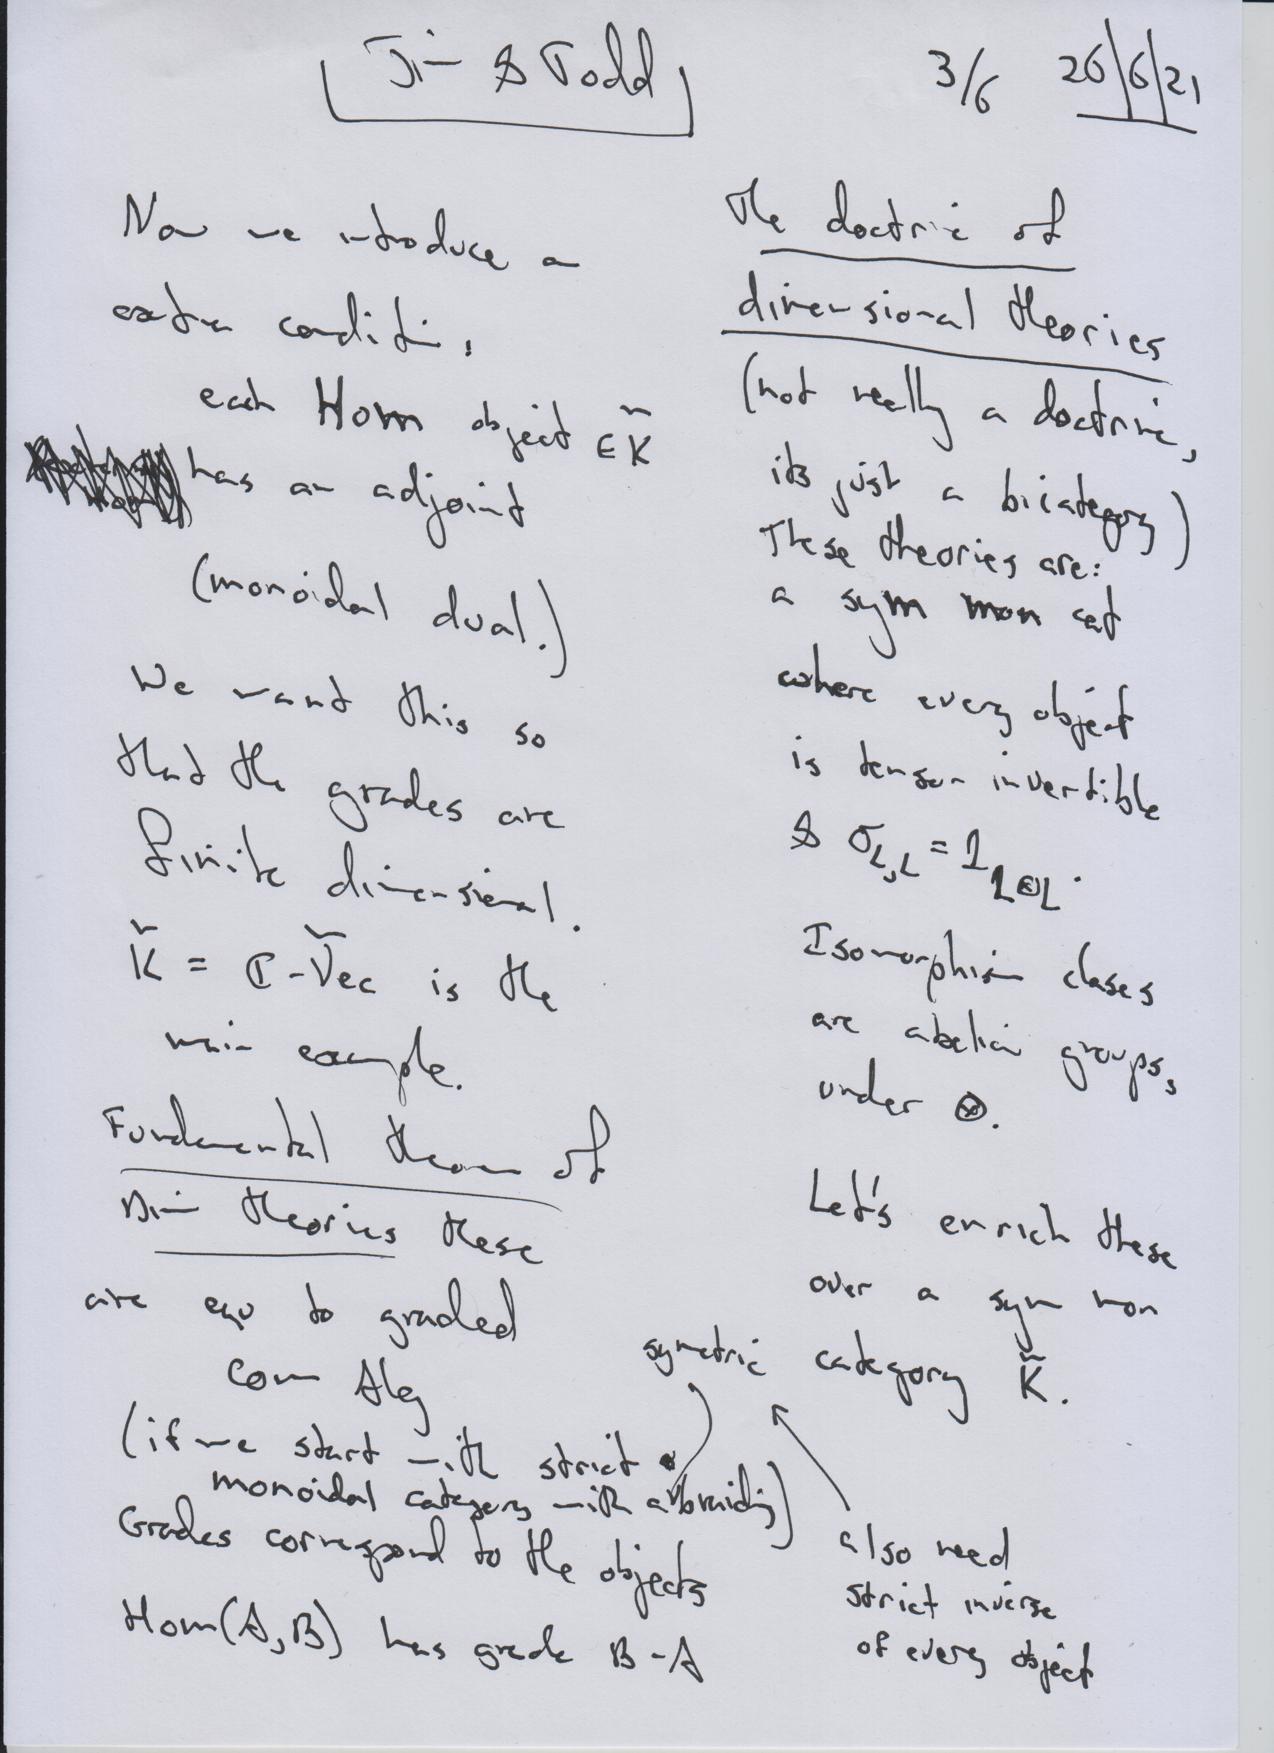 Jim & Todd
3/6 26/6/21
Now we introduce an
extra condition,
each Hom object ∈ K̃
has an adjoint
(monoidal dual.)
We want this so
that the grades are
finite dimensional.
K̃ = ℂ-Ṽec is the
main example.
Fundamental theorem of
Dim theories these
are eqv to graded
Com Alg
(if we start with strict symetric
monoidal category with a braiding)
Grades correspond to the objects
Hom(A,B) has grade B-A
The doctrine of
dimensional theories
(not really a doctrine,
its just a bicategory)
These theories are:
a sym mon cat
where every object
is tensor invertible
& σ_{L,L} = 1_{L⊗L}.
Isomorphism clases
are abelian groups,
under ⊗.
Let's enrich these
over a sym mon
category K̃.
also need
strict inverse
of every object